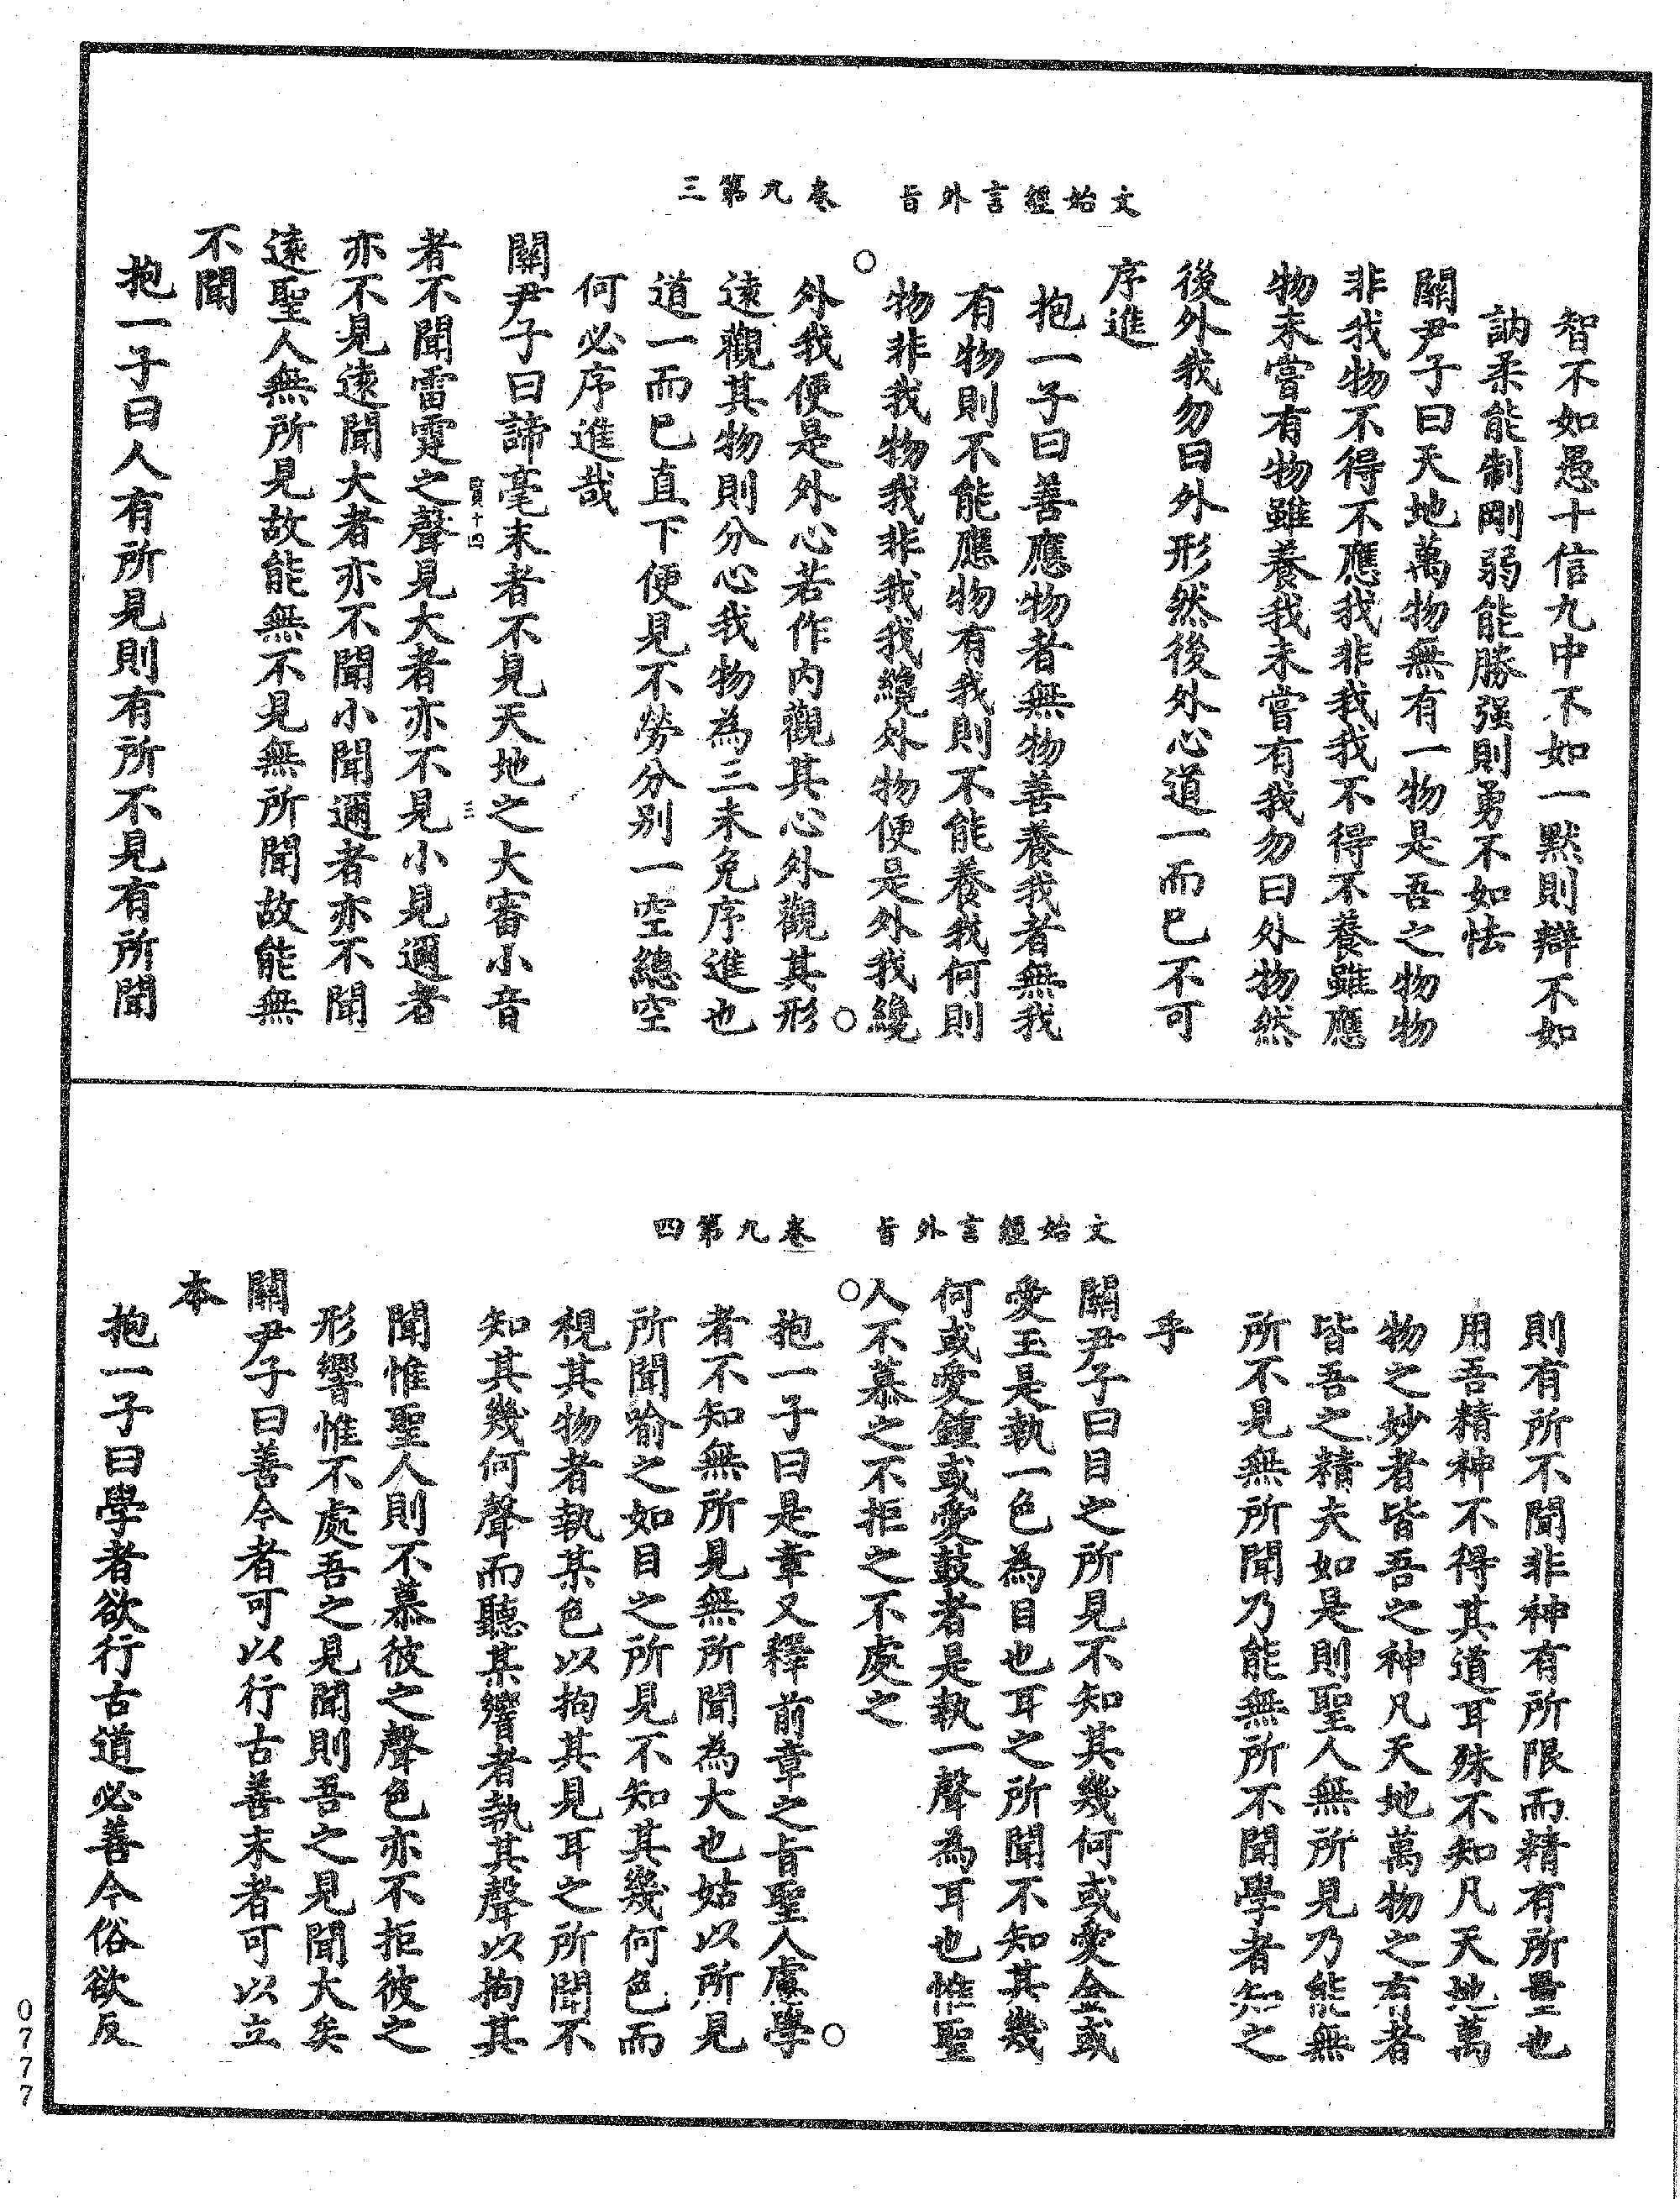 文始經言外旨　卷九第三
智不如愚十信九中不如一默則辯不如
訥柔能制剛弱能勝强則勇不如怯
關尹子曰天地萬物無有一物是吾之物物
非我物不得不應我非我我不得不養雖應
物未嘗有物雖養我未嘗有我勿曰外物然
後外我勿曰外形然後外心道一而已不可
序進
抱一子曰善應物者無物善養我者無我
有物則不能應物有我則不能養我何則
物非我物我非我我纔外物便是外我纔
外我便是外心若作內觀其心外觀其形
遠觀其物則分心我物為三未免序進也
道一而已直下便見不勞分别一空總空
何必序進哉
關尹子曰諦毫末者不見天地之大審小音
者不聞雷霆之聲見大者亦不見小見邇者
亦不見遠聞大者亦不聞小聞邇者亦不聞
遠聖人無所見故能無不見無所聞故能無
不聞
抱一子曰人有所見則有所不見有所聞
文始經言外旨　卷九第四
則有所不聞非神有所限而精有所量也
用吾精神不得其道耳殊不知凡天地萬
物之妙者皆吾之神凡天地萬物之有者
皆吾之精夫如是則聖人無所見乃能無
所不見無所聞乃能無所不聞學者知之
乎
關尹子曰目之所見不知其幾何或愛金或
愛玉是執一色為目也耳之所聞不知其幾
何或愛鐘或愛鼓者是執一聲為耳也惟聖
人不慕之不拒之不處之
抱一子曰是章又釋前章之旨聖人慮學
者不知無所見無所聞為大也姑以所見
所聞喻之如目之所見不知其幾何色而
視其物者執某色以拘其見耳之所聞不
知其幾何聲而聽某響者執其聲以拘其
聞惟聖人則不慕彼之聲色亦不拒彼之
形響惟不處吾之見聞則吾之見聞大矣
關尹子曰善今者可以行古善末者可以立
本
抱一子曰學者欲行古道必善今俗欲反
0777